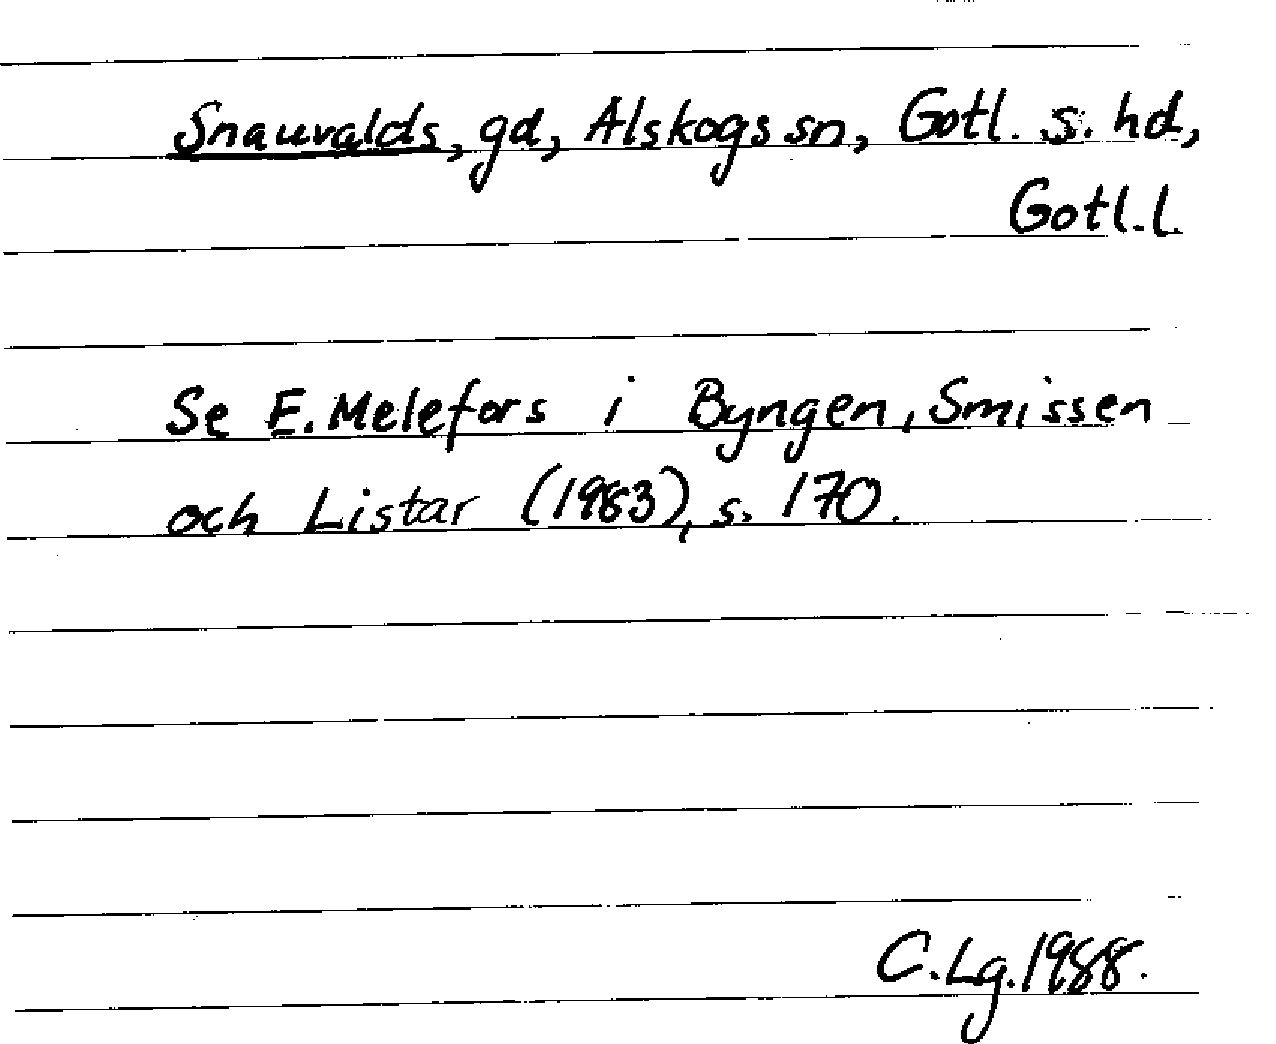 Snauvalds, gd, Alskogs sn, Gotl. s. hd,
Gotl.l.
Se E. Melefors i Byngen, Smissen
och Listar (1983), s. 170.
C.Lg. 1988.